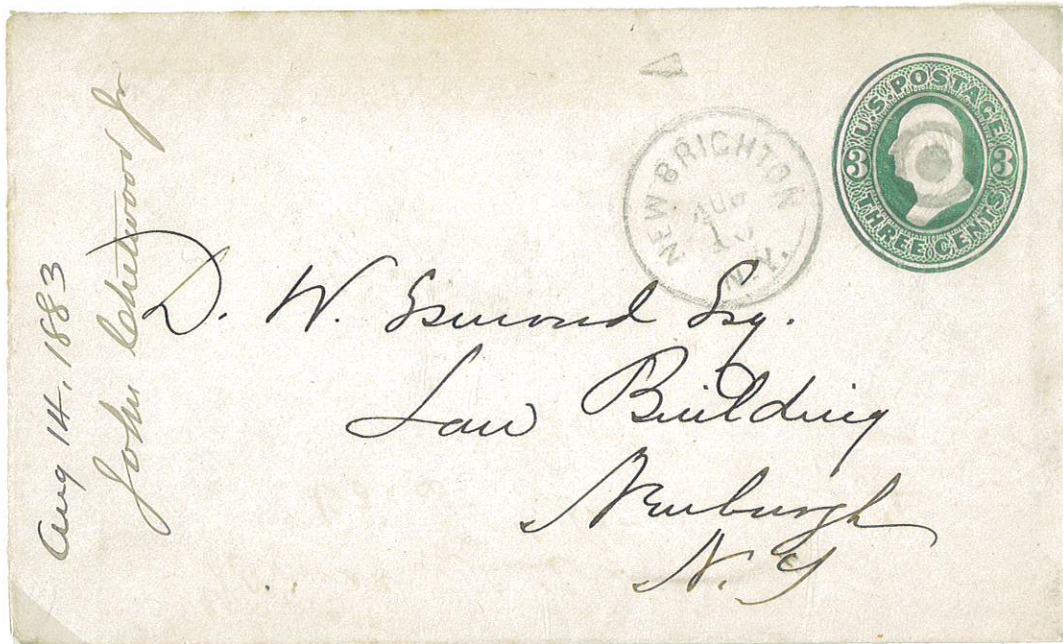 Aug 14. 1883
John Chetwood Jr
NEW BRIGHTON
AUG
N.Y.
U.S. POSTAGE
3 3
THREE CENTS
D. W. Esmond Esq.
Law Building
Newburgh
N. Y